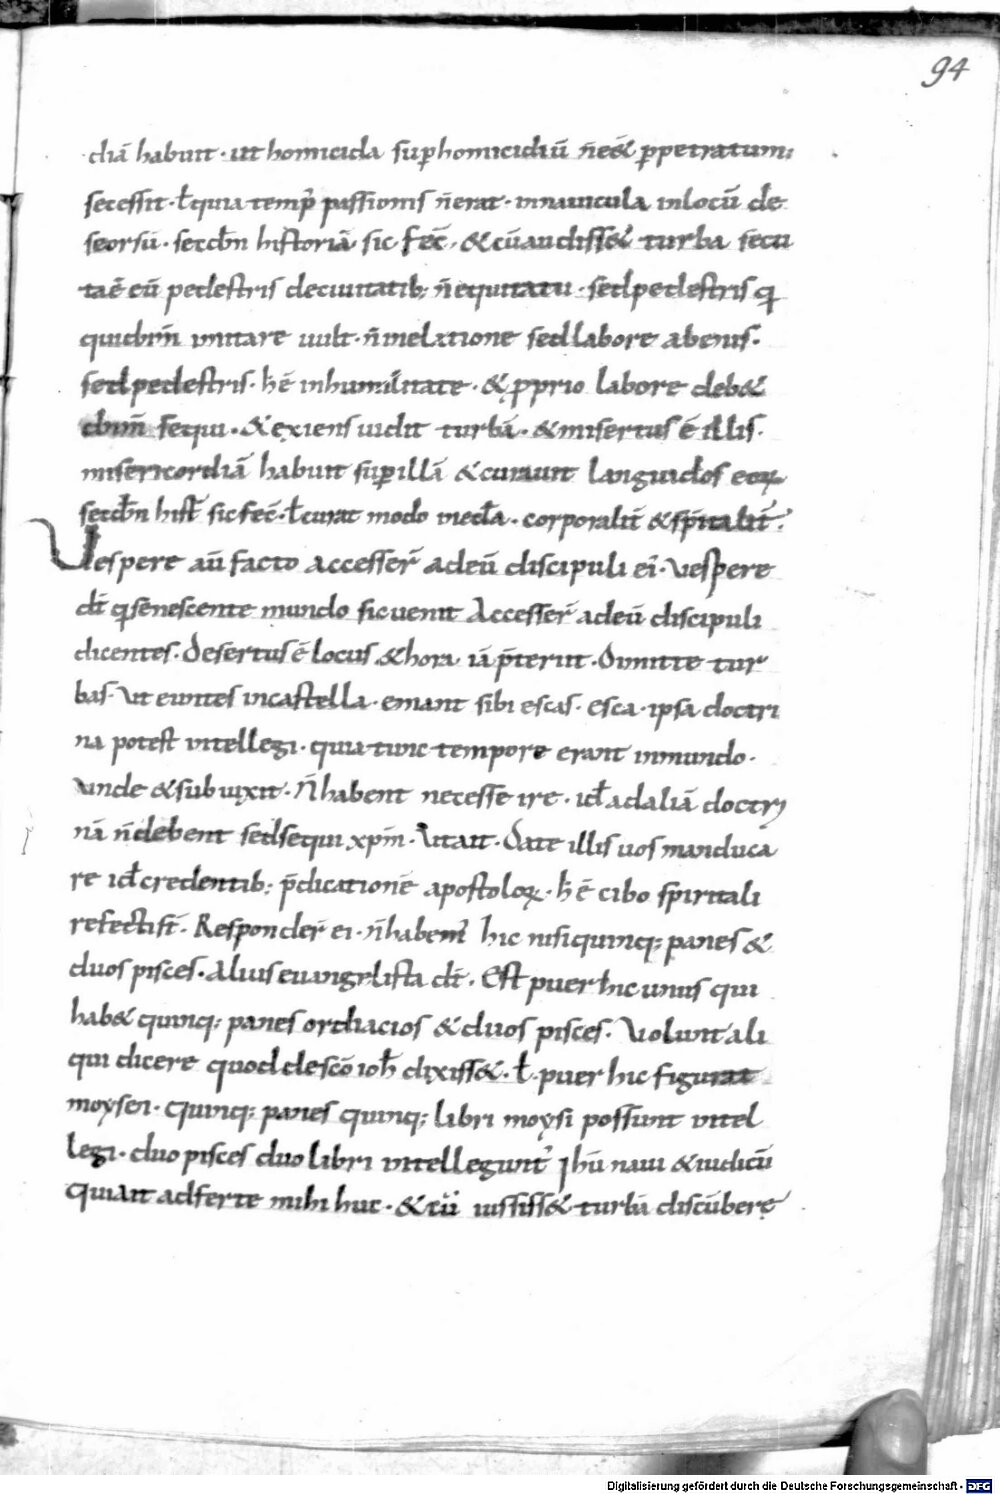 94
diā habuit · ut homicida sup homicidiū n̄ e&́ ppetratum;
secessit · ł quia temp̄ passionis n̄ erat · in nauicula in locū de
seorsū · secdn̄ historiā sic fec̄ · & cū audiss& turba secu
tae ē eū pedestris deciuitatib; n̄ equitatu · sed pedestris q
qui dn̄m imitare uult · n̄ in elatione sed labore abenis ·
sed pedestris · h ē in humilitate · & pprio labore deb&
dn̄m sequi · & exiens uidit turbā · & misertus ē illis ·
misericordiā habuit sup illā & curauit languidos eoꝝ
secdn̄ hist̄ sic fec̄ · ł curat modo inecła · corporaliī & sp̄italiī ·
Vespere aū facto accesser̄ ad eū discipuli ei · Vespere
dt̄ q senescente mundo sic uenit Accesser̄ ad eū discipuli
dicentes · Desertus ē locus & hora iā p̄terit · Dimitte tur
bas · Ut euntes in castella · emant sibi escas · esca · ipsa doctri
na potest intellegi · quia tunc tempore erant in mundo ·
Unde & subiuxit · N̄ habent necesse ire · id ad aliā doctri
nā n̄ debent sed sequi xp̄m · Ut ait · Date illis uos manduca
re id credentib; p̄dicationē apostoloꝝ · h ē cibo spiritali
refecti sī · Responder̄ ei · n̄ habem̄ hic nisi quinq; panes &
duos pisces · Alius euangelista dt̄ · Est puer hic unus qui
hab& quinq; panes ordiacios & duos pisces · Volunt ali
qui dicere quod de sc̄o ioh̄ dixiss& · ł · puer hic figurat
moysen · quinq; panes quinq; libri moysi possunt intel
legi · duo pisces duo libri intellegunt̄ ihū naui & iudicū
qui ait adferte mihi huc · & cū iussiss& turbā discūbere
Digitalisierung gefördert durch die Deutsche Forschungsgemeinschaft - DFG